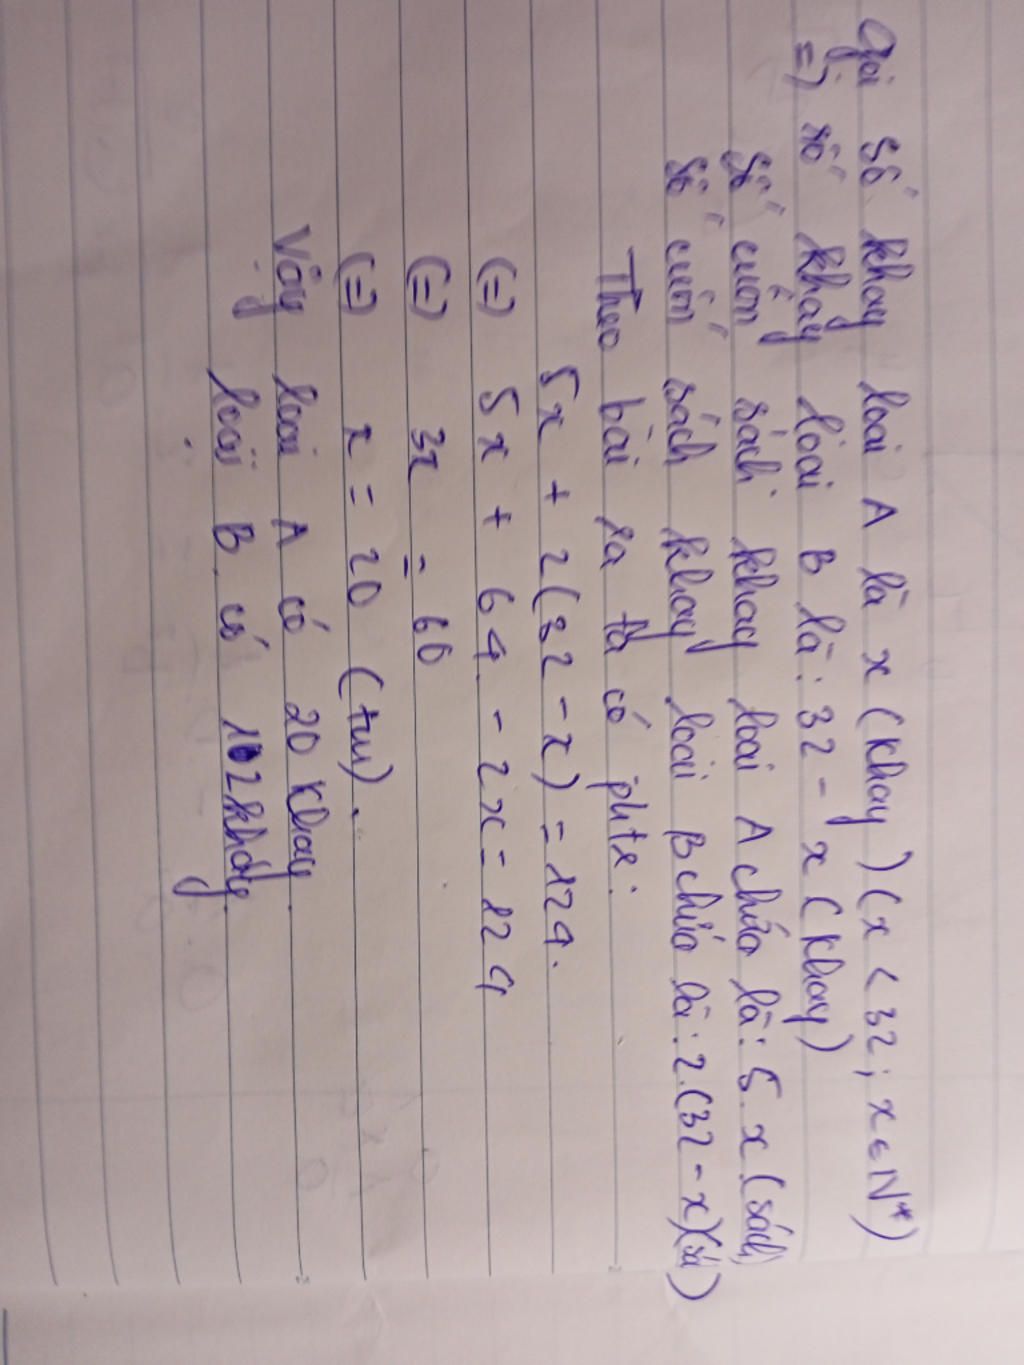 Gọi số khay loại A là x (khay) (x < 32; x ∈ N*)
=) số khay loại B là: 32 - x (khay)
Số cuốn sách khay loại A chứa là: 5.x (sách)
Số cuốn sách khay loại B chứa là: 2.(32 - x)(sá)
Theo bài ra ta có phtr:
5x + 2(32 - x) = 124.
(=) 5x + 64 - 2x = 124
(=) 3x = 60
(=) x = 20 (tm).
Vậy loại A có 20 khay.
loại B có 12 khay.